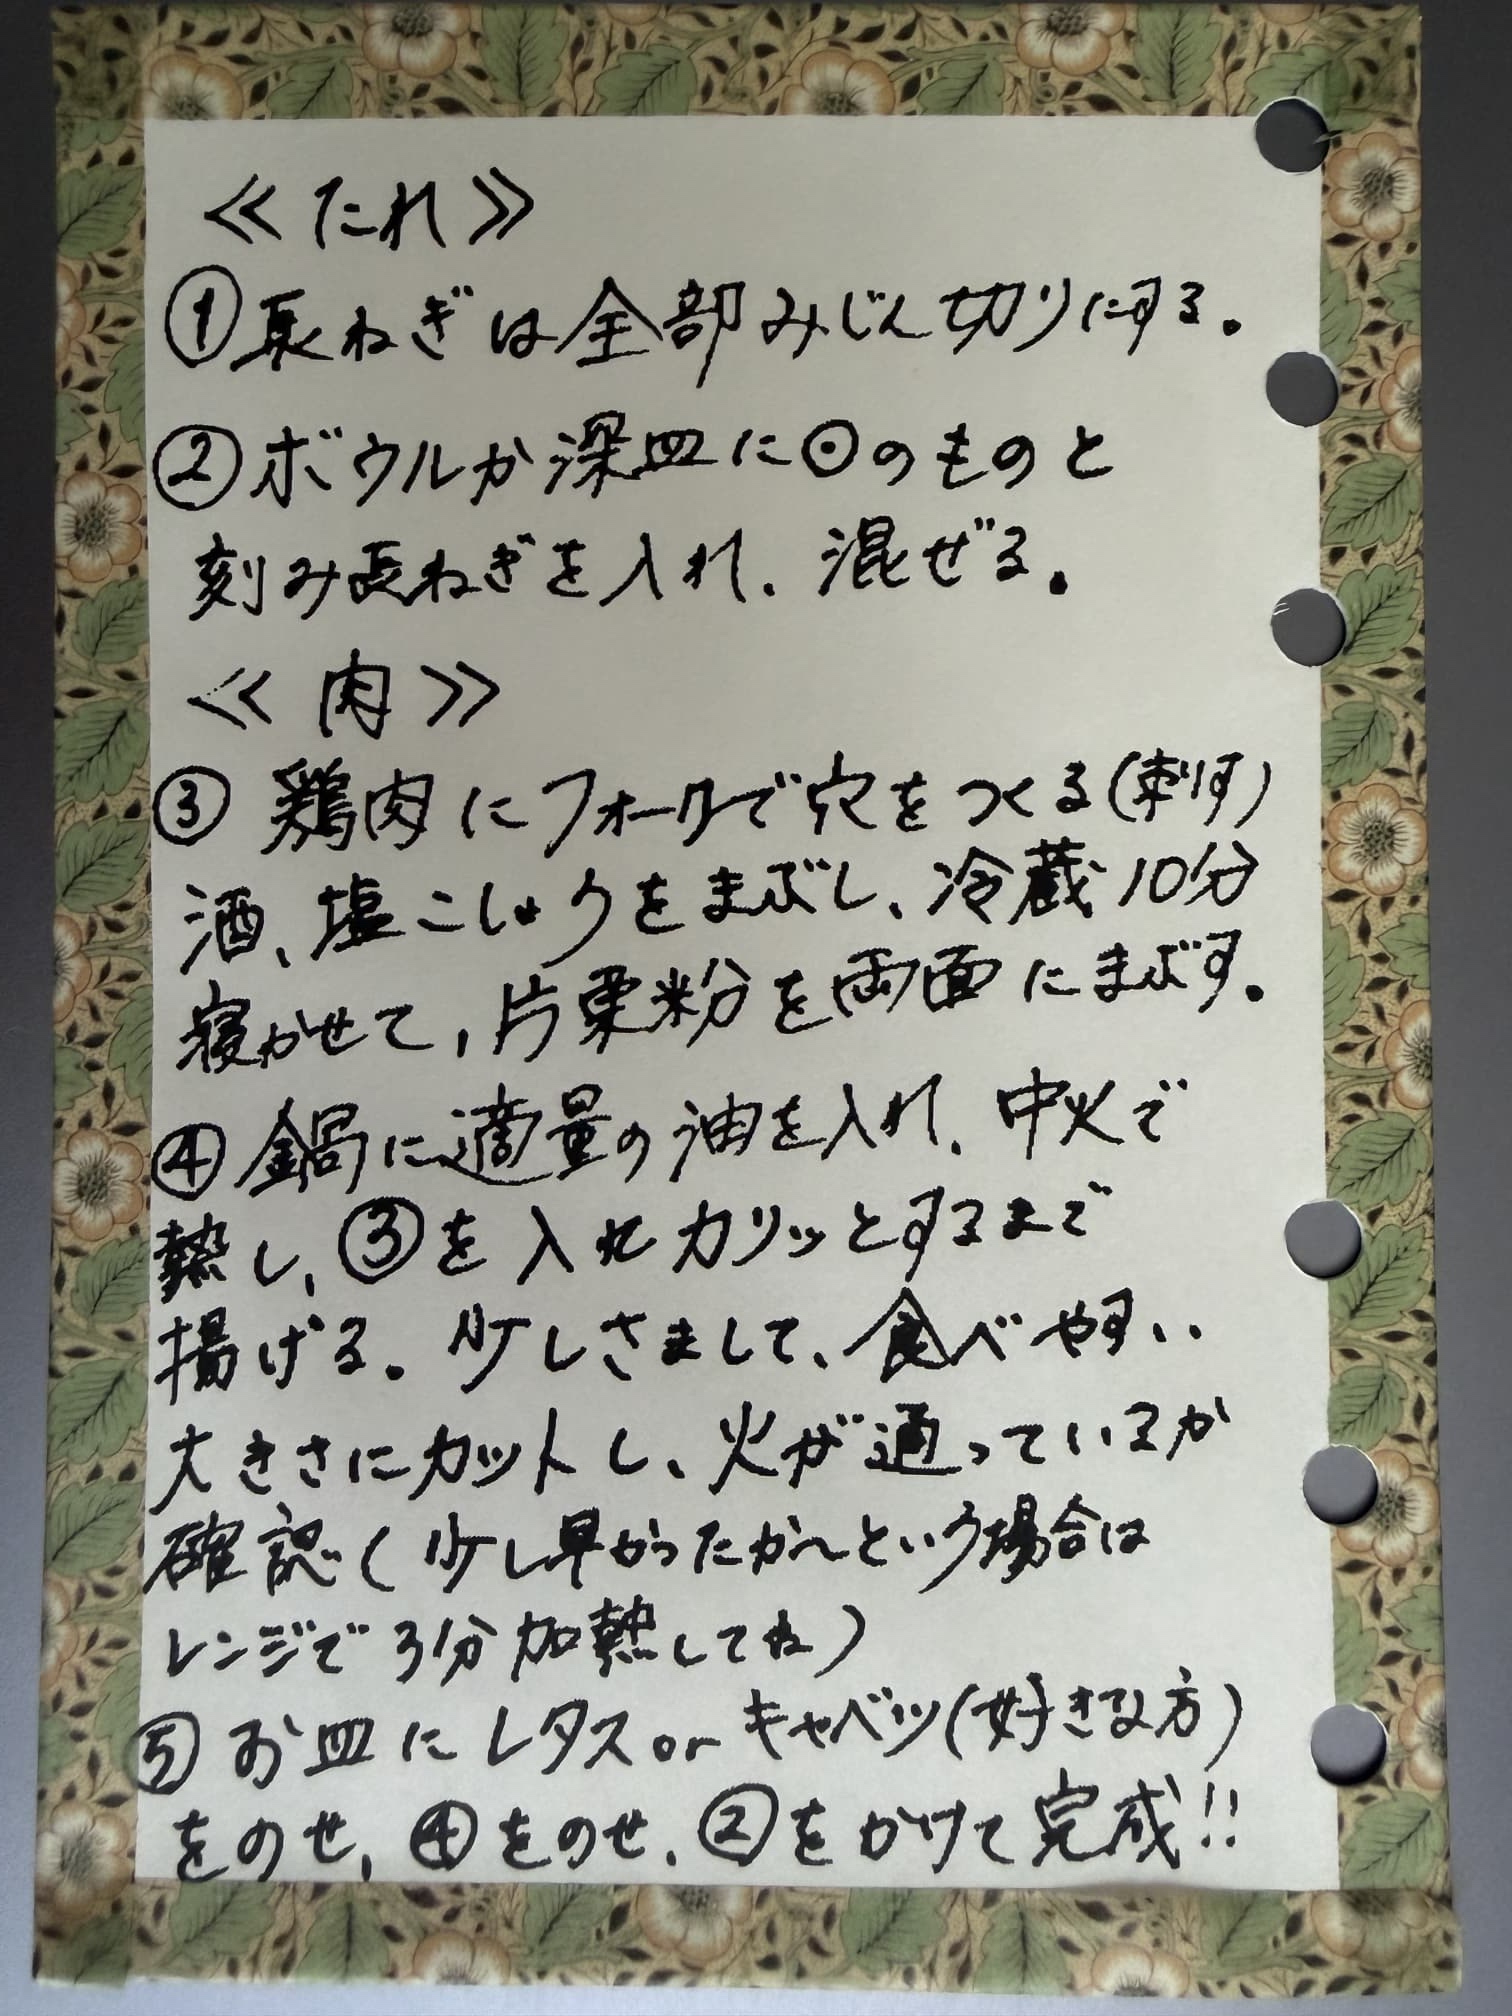 ≪たれ≫
①長ねぎは全部みじん切りにする。
②ボウルか深皿に⊙のものと
刻み長ねぎを入れ、混ぜる。
≪肉≫
③鶏肉にフォークで穴をつくる(刺す)
酒、塩こしょうをまぶし、冷蔵10分
寝かせて、片栗粉を両面にまぶす。
④鍋に適量の油を入れ、中火で
熱し、③を入れカリッとするまで
揚げる。少しさまして、食べやすい
大きさにカットし、火が通っているか
確認(少し早かったか〜という場合は
レンジで3分加熱してね)
⑤お皿にレタスorキャベツ(好きな方)
をのせ、④をのせ、②をかけて完成!!